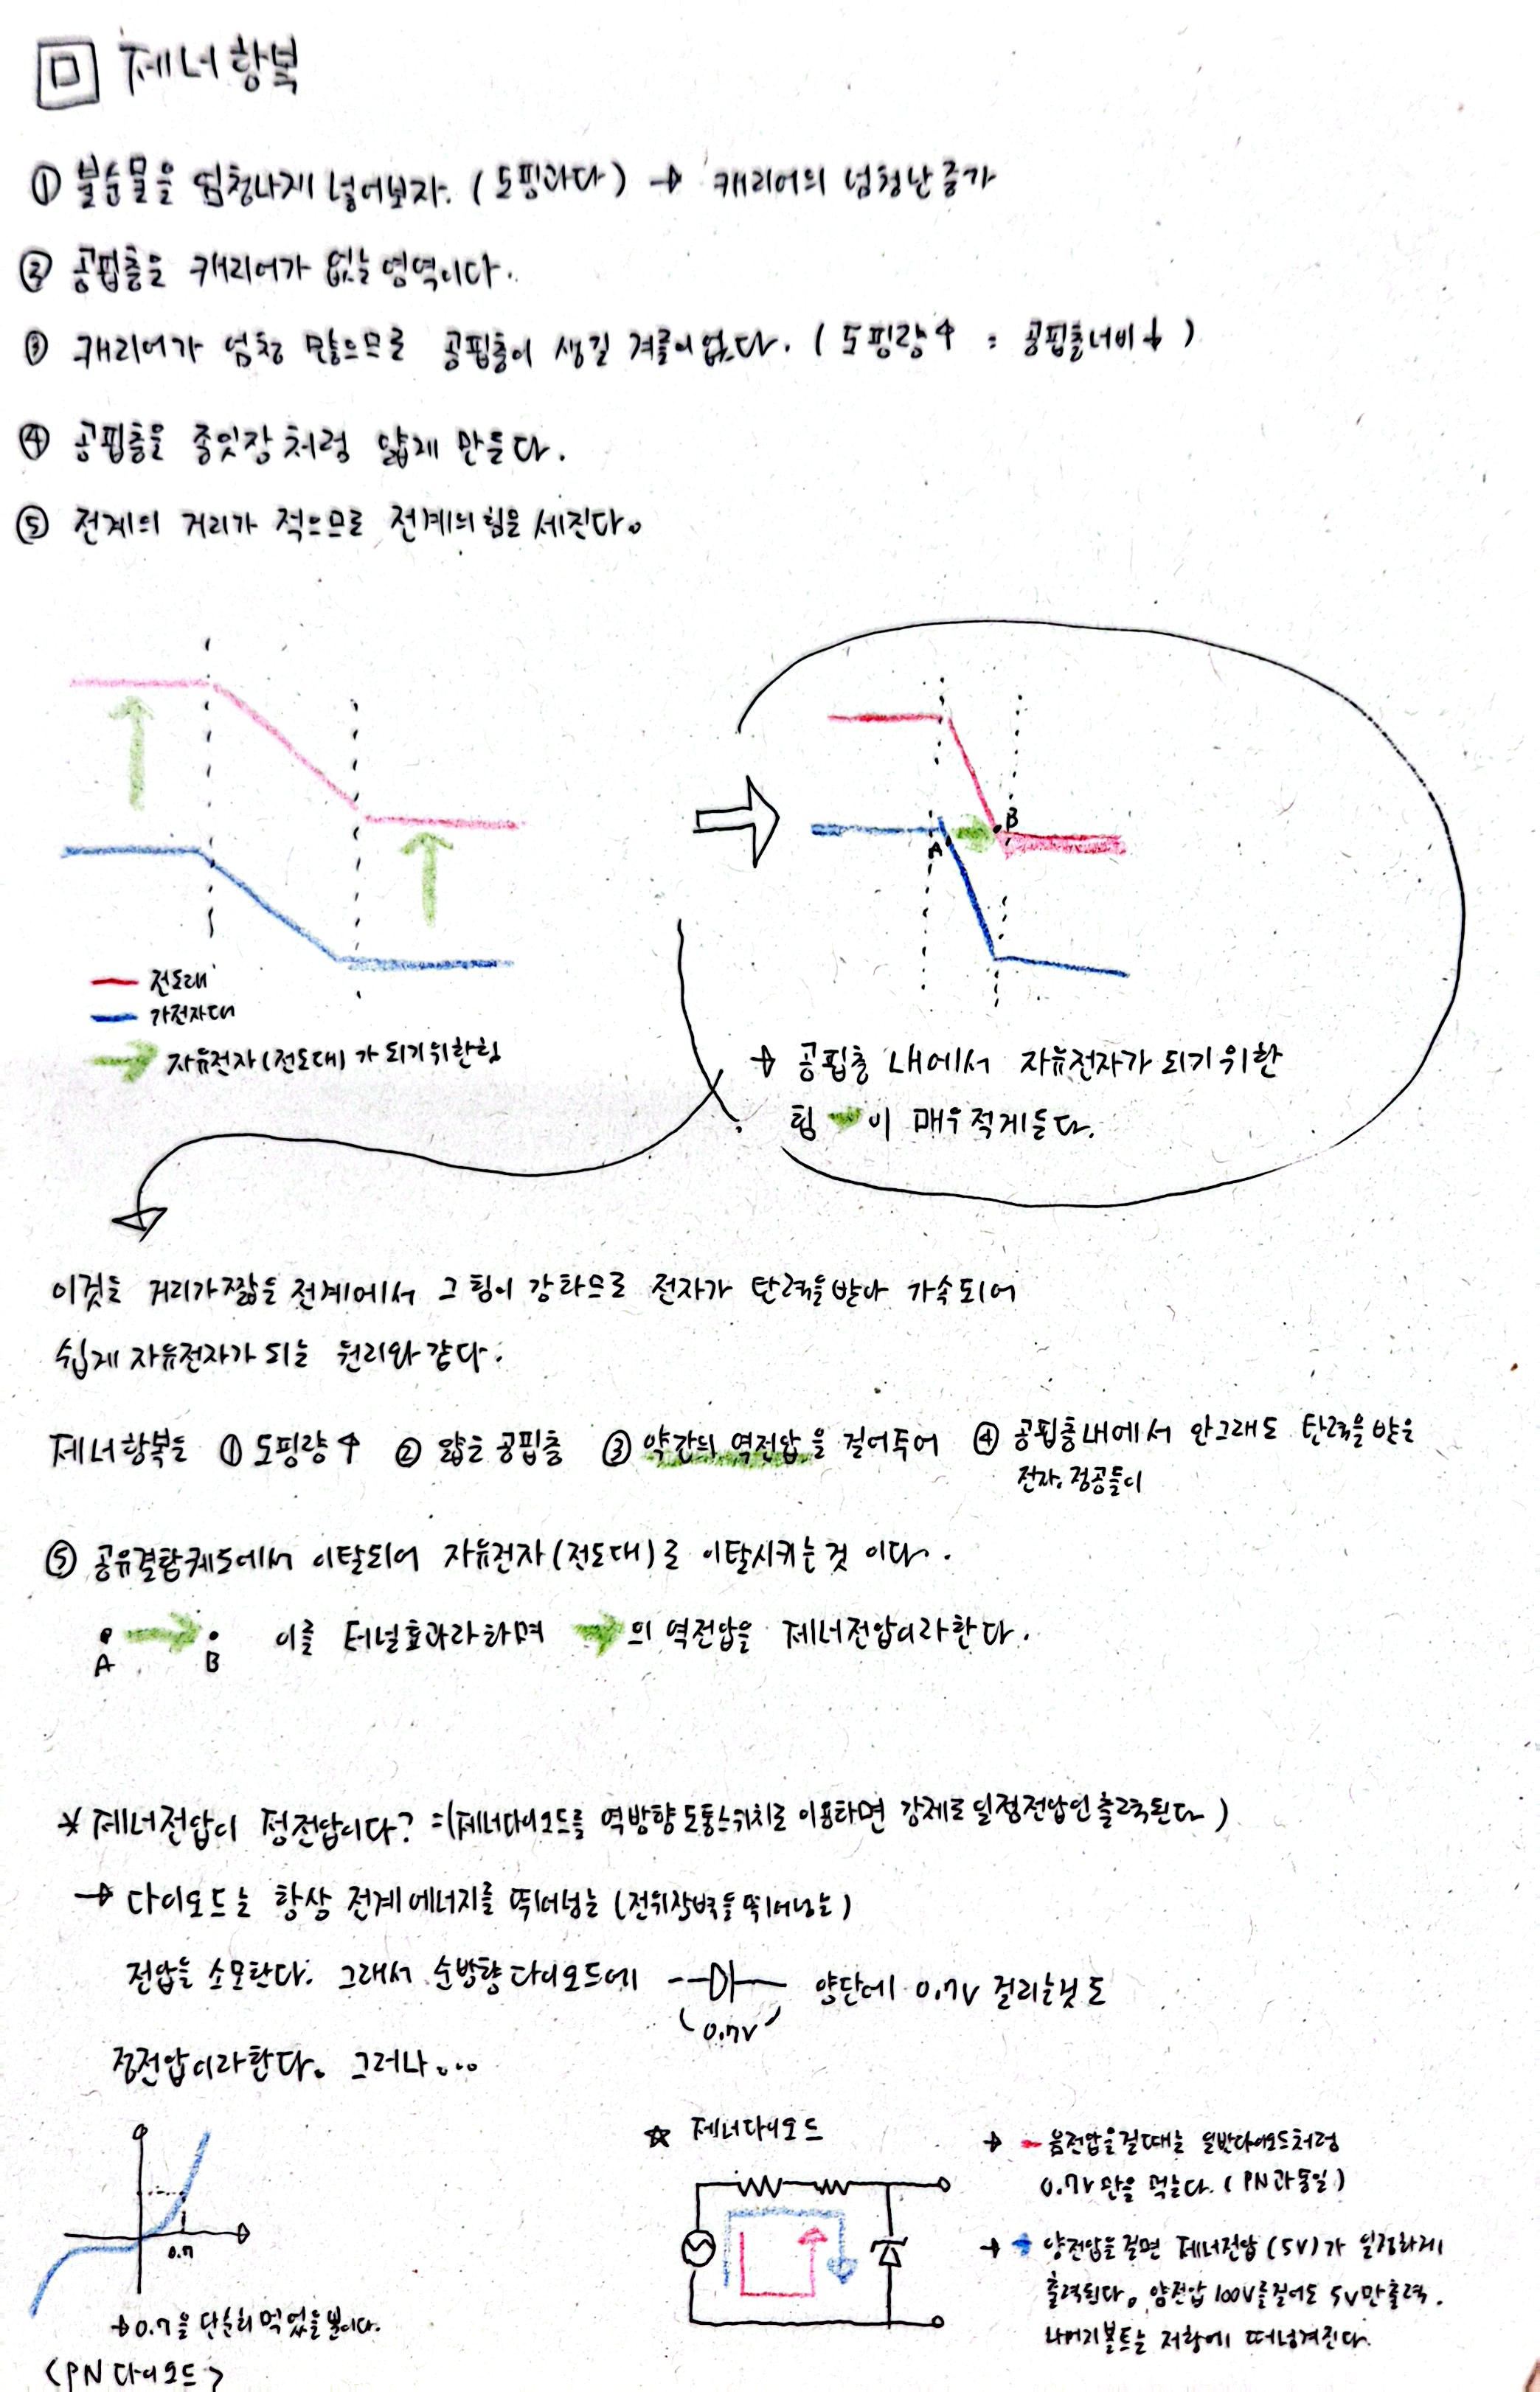 回 제너항복
① 불순물을 엄청나게 넣어보자. (도핑과다) → 캐리어의 엄청난 증가
② 공핍층은 캐리어가 없는 영역이다.
③ 캐리어가 엄청 많으므로 공핍층이 생길 겨를이 없다. (도핑량↑ : 공핍층너비↓)
④ 공핍층을 종잇장처럼 얇게 만든다.
⑤ 전계의 거리가 적으므로 전계의 힘은 세진다.
B
A
전도대
가전자대
자유전자(전도대)가 되기위한힘
→ 공핍층 내에서 자유전자가 되기위한
힘 이 매우 적게든다.
이것은 거리가짧은 전계에서 그 힘이 강하므로 전자가 탄력을받아 가속되어
쉽게 자유전자가 되는 원리와 같다.
제너항복은 ① 도핑량↑ ② 얇은 공핍층 ③ 약간의 역전압을 걸어두어 ④ 공핍층내에서 안그래도 탄력을 받은
전자, 정공들이
⑤ 공유결합궤도에서 이탈되어 자유전자(전도대)로 이탈시키는것 이다.
A → B 이를 터널효과라하며 → 의 역전압을 제너전압이라한다.
* 제너전압이 정전압이다? =(제너다이오드를 역방향 도통스위치로 이용하면 강제로 일정전압만 출력된다)
→ 다이오드는 항상 전계에너지를 뛰어넘는 (전위장벽을 뛰어넘는)
전압을 소모한다. 그래서 순방향 다이오드에 양단에 0.7V 걸리는것도
(0.7V)
정전압이라한다. 그러나...
0.7
→0.7을 단순히 먹었을 뿐이다.
<PN 다이오드>
☆ 제너다이오드
→ - 음전압을걸때는 일반다이오드처럼
0.7V 만을 먹는다. (PN과동일)
→ + 양전압을 걸면 제너전압 (5V)가 일정하게
출력된다. 양전압 100V를걸어도 5V만출력.
나머지볼트는 저항에 떠넘겨진다.